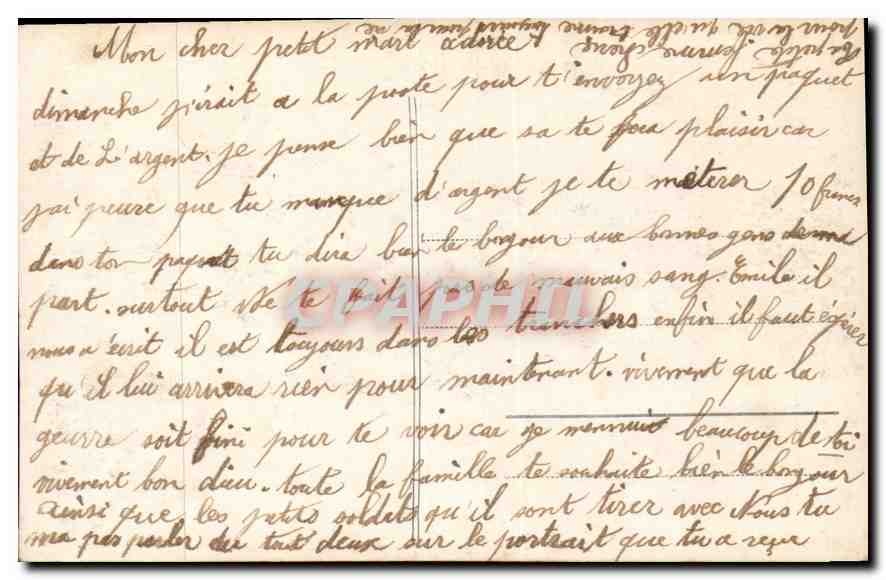 Mon cher petit mari adoré
dimanche j'irait a la poste pour t'envoyez un paquet
et de L'argent. je pense bien que sa te fera plaisir car
j'ai peure que tu manque d'argent je te meterer 10 francs
dans ton paquet tu dira bien le bonjour aux bonnes gens de ma
part. surtout Ne te fait pas de mauvais sang. Emile il
nous a écrit il est toujours dans les tranchers enfin il faut éspérer
qu'il lui arrivera rien pour maintenant. vivement que la
geurre soit fini pour te voir car je mennuie beaucoup de toi
vivement bon dieu. toute la famille te souhaite bien le bonjour
ainsi que les petits soldats qu'il sont tirer avec Nous tu
ma pas parler du tout deux sur le portrait que tu a reçue
Ta petite femme chérie
pour la vie qu'elle t'aime toujours pour la vie
CPAPHIL